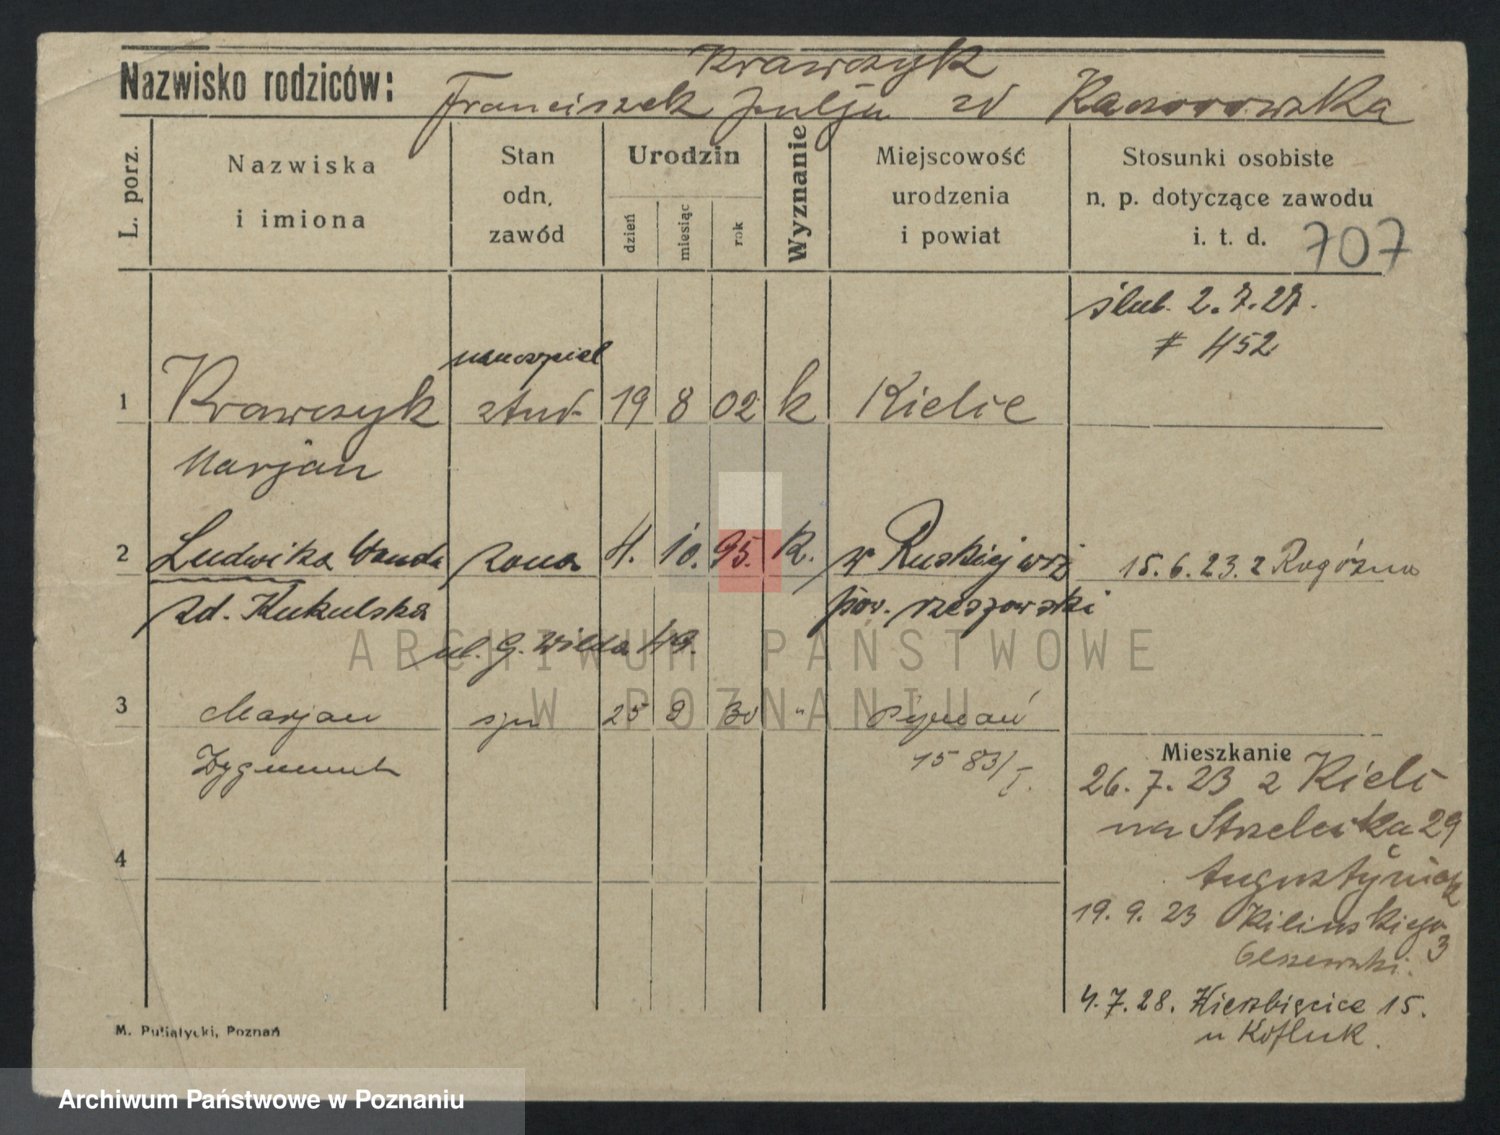 Krawczyk
Nazwisko rodziców: Franciszek Julja zd
L. porz.
Nazwiska i imiona
Stan odn. zawód
Urodzin
dzień
miesiąc
rok
Wyznanie
Miejscowość urodzenia i powiat
Stosunki osobiste n. p. dotyczące zawodu i. t. d.
707
ślub. 2.7.27.
# 452
nauczyciel
1 Krawczyk stud. 19 8 02 k Kielce
Marjan
2 Ludwika Wanda żona 4. 10. 95. k. w Ruskiej wsi 15.6.23. z Rogóżna
zd. Kukulska pow. rzeszowski
ul. G. Wilda 49.
3 Marjan syn 25 8 30 " Poznań
Zygmunt 1583/I.
Mieszkanie
26.7.23 z Kielc
na Strzelecka 29
Augustyniak
4
19.9.23 Kilińskiego 3
4.7.28. Wierzbięcice 15.
u
M. Putiatycki, Poznań
ARCHIWUM PAŃSTWOWE
W POZNANIU
Archiwum Państwowe w Poznaniu